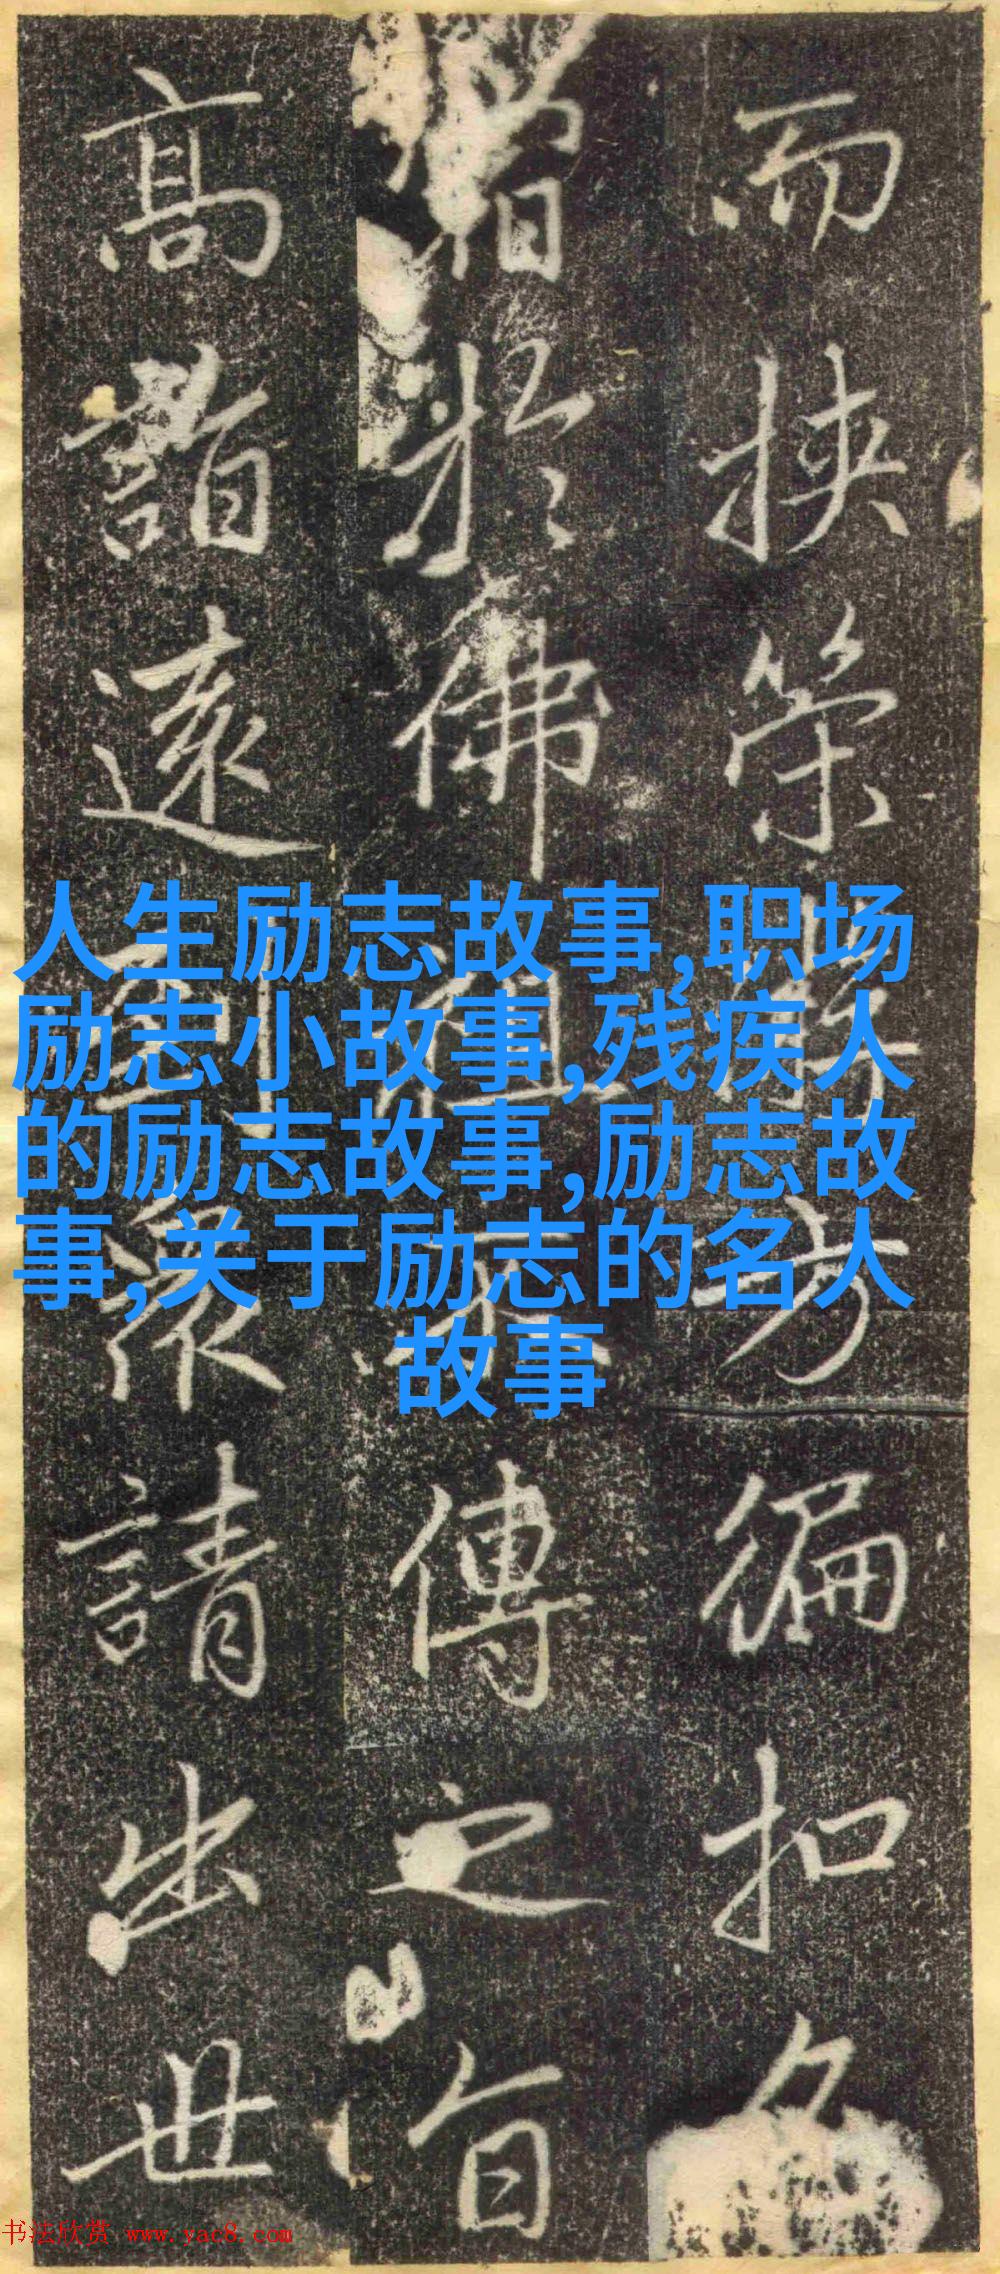 人生励志故事,职场
励志小故事,残疾人
的励志故事,励志故
事,关于励志的名人
故事
而挾策方徧扣名
於佛祖不傳之旨
高詣遠到衆請出世
书法欣赏 www.yac8.com